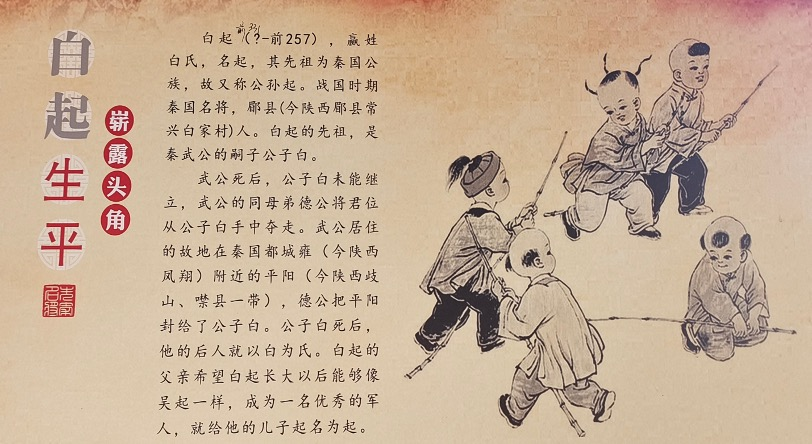 白起生平
崭露头角
白起(?-前257)，赢姓
白氏，名起，其先祖为秦国公
族，故又称公孙起。战国时期
秦国名将，郿县(今陕西郿县常
兴白家村)人。白起的先祖，是
秦武公的嗣子公子白。
武公死后，公子白未能继
立，武公的同母弟德公将君位
从公子白手中夺走。武公居住
的故地在秦国都城雍（今陕西
凤翔）附近的平阳（今陕西歧
山、噤县一带），德公把平阳
封给了公子白。公子白死后，
他的后人就以白为氏。白起的
父亲希望白起长大以后能够像
吴起一样，成为一名优秀的军
人，就给他的儿子起名为起。